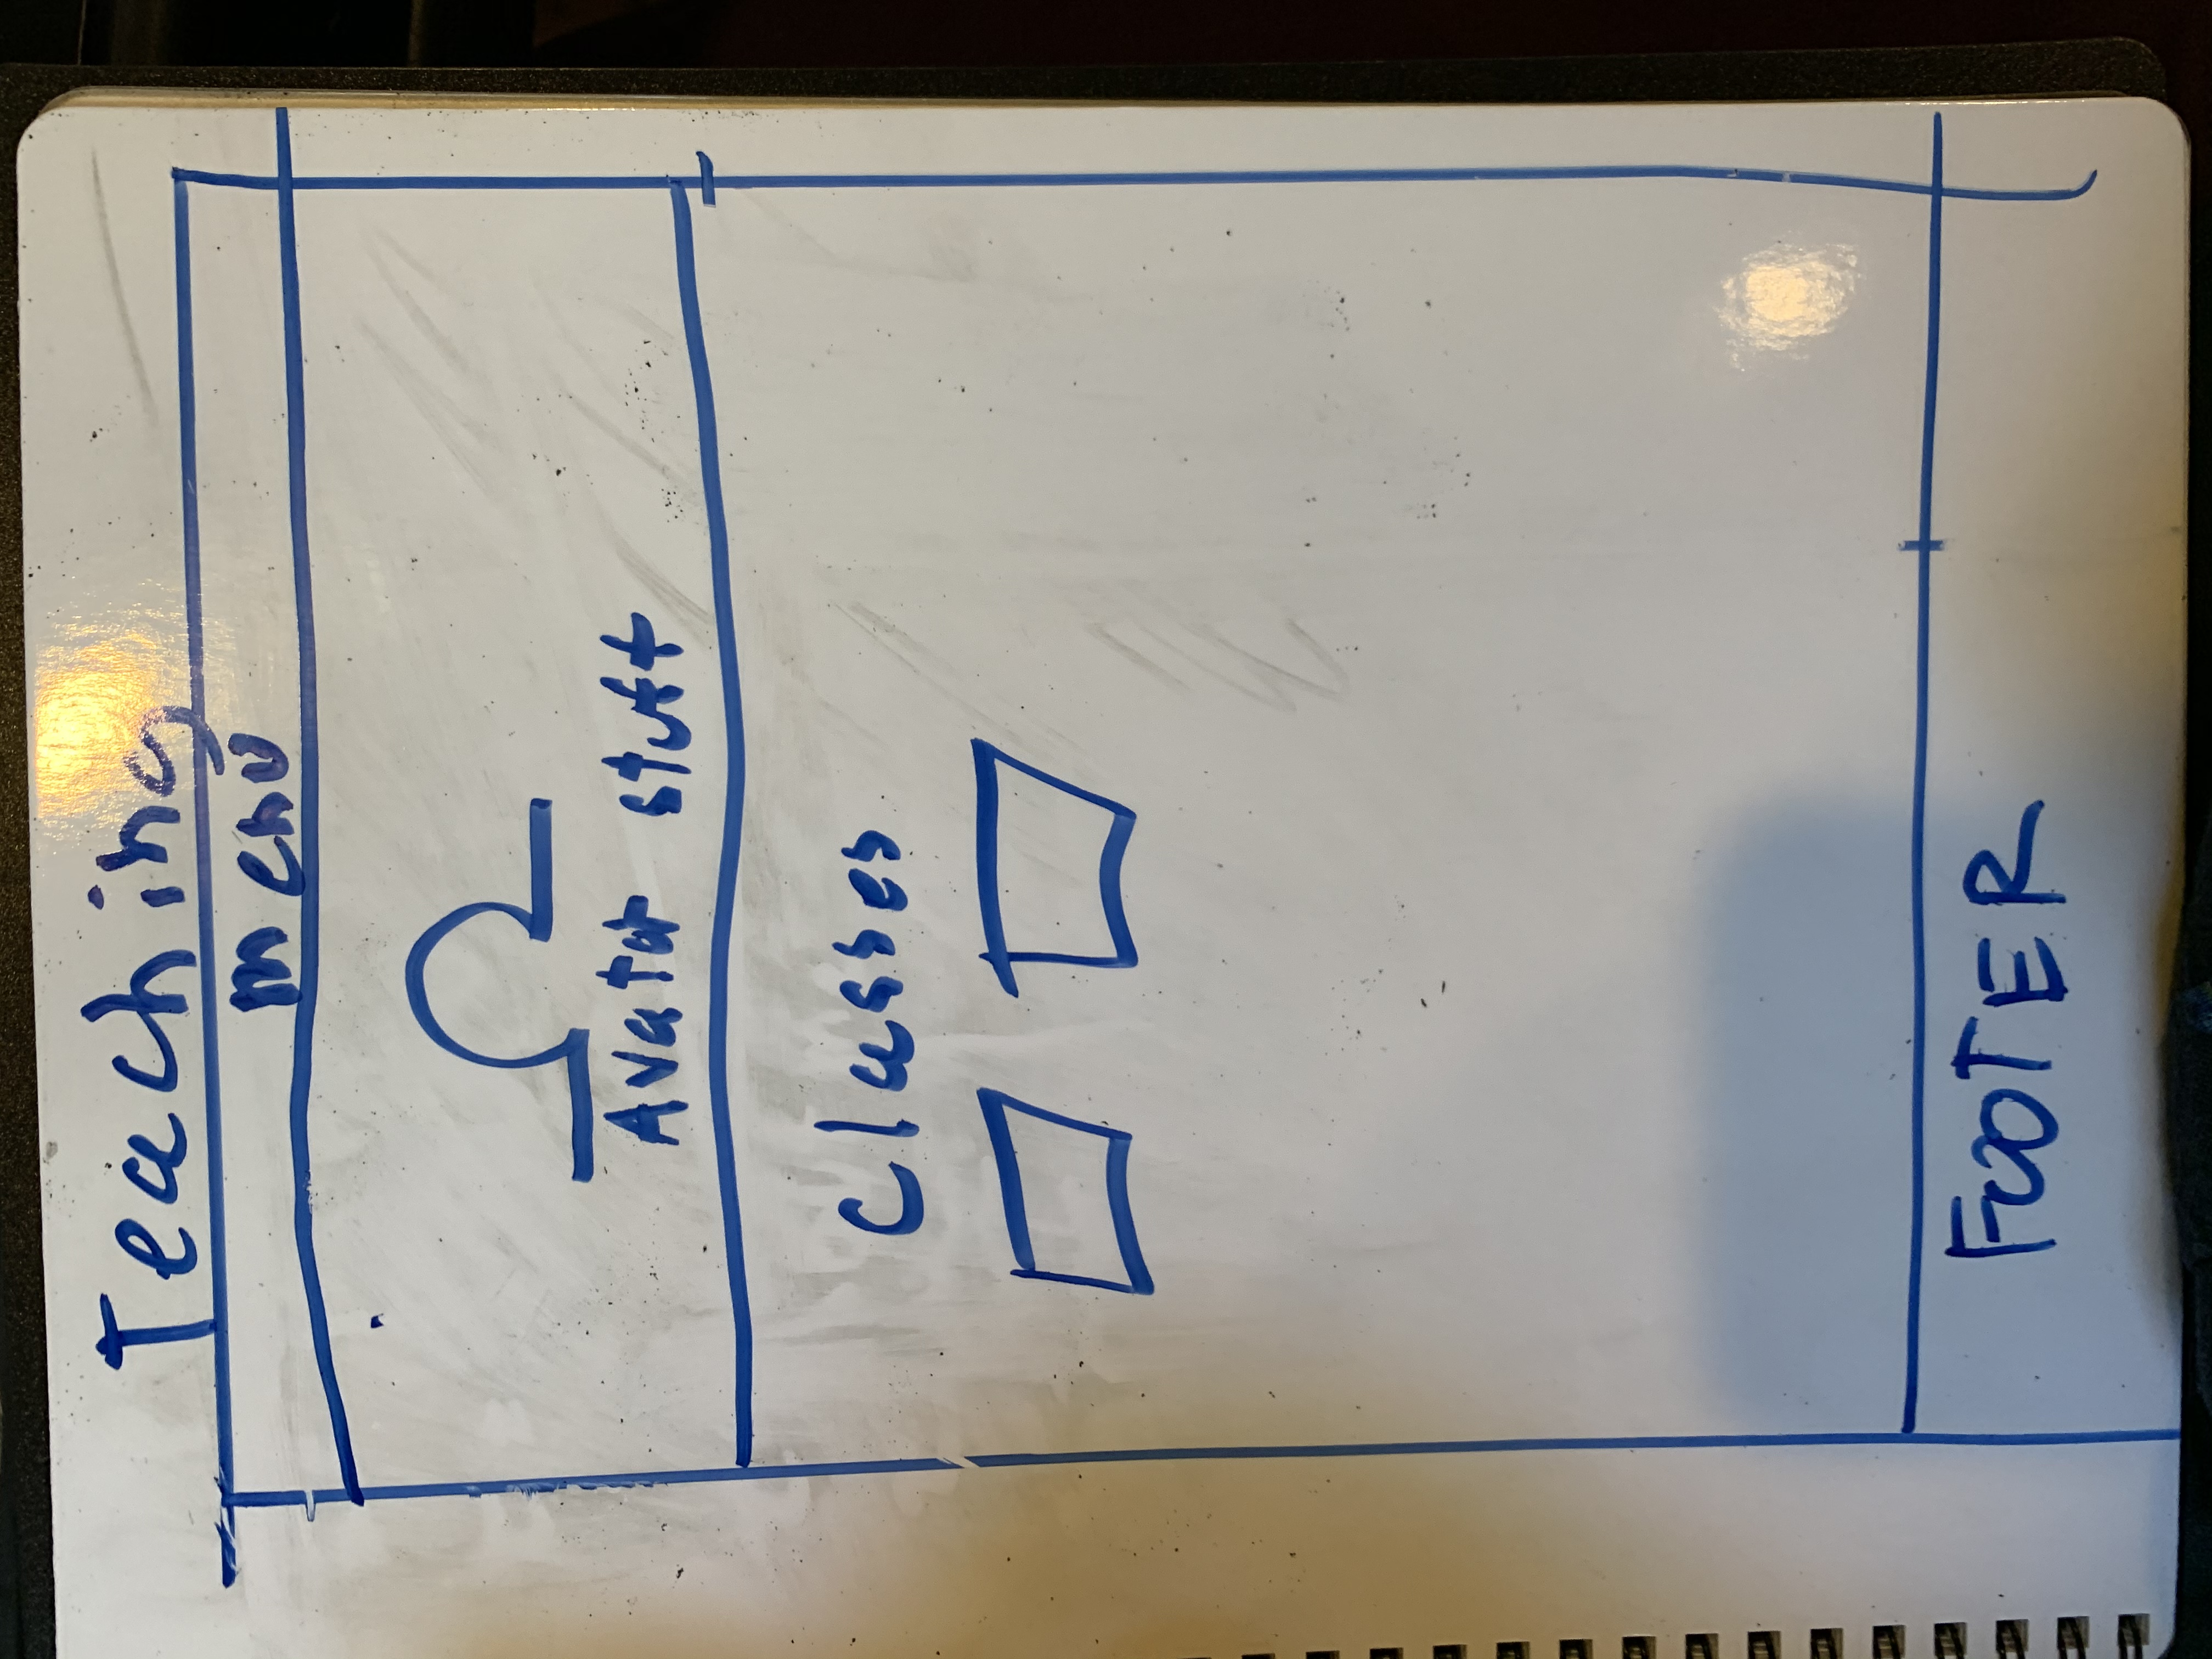 Teaching
menu
Avatar stuff
Classes
FOOTER